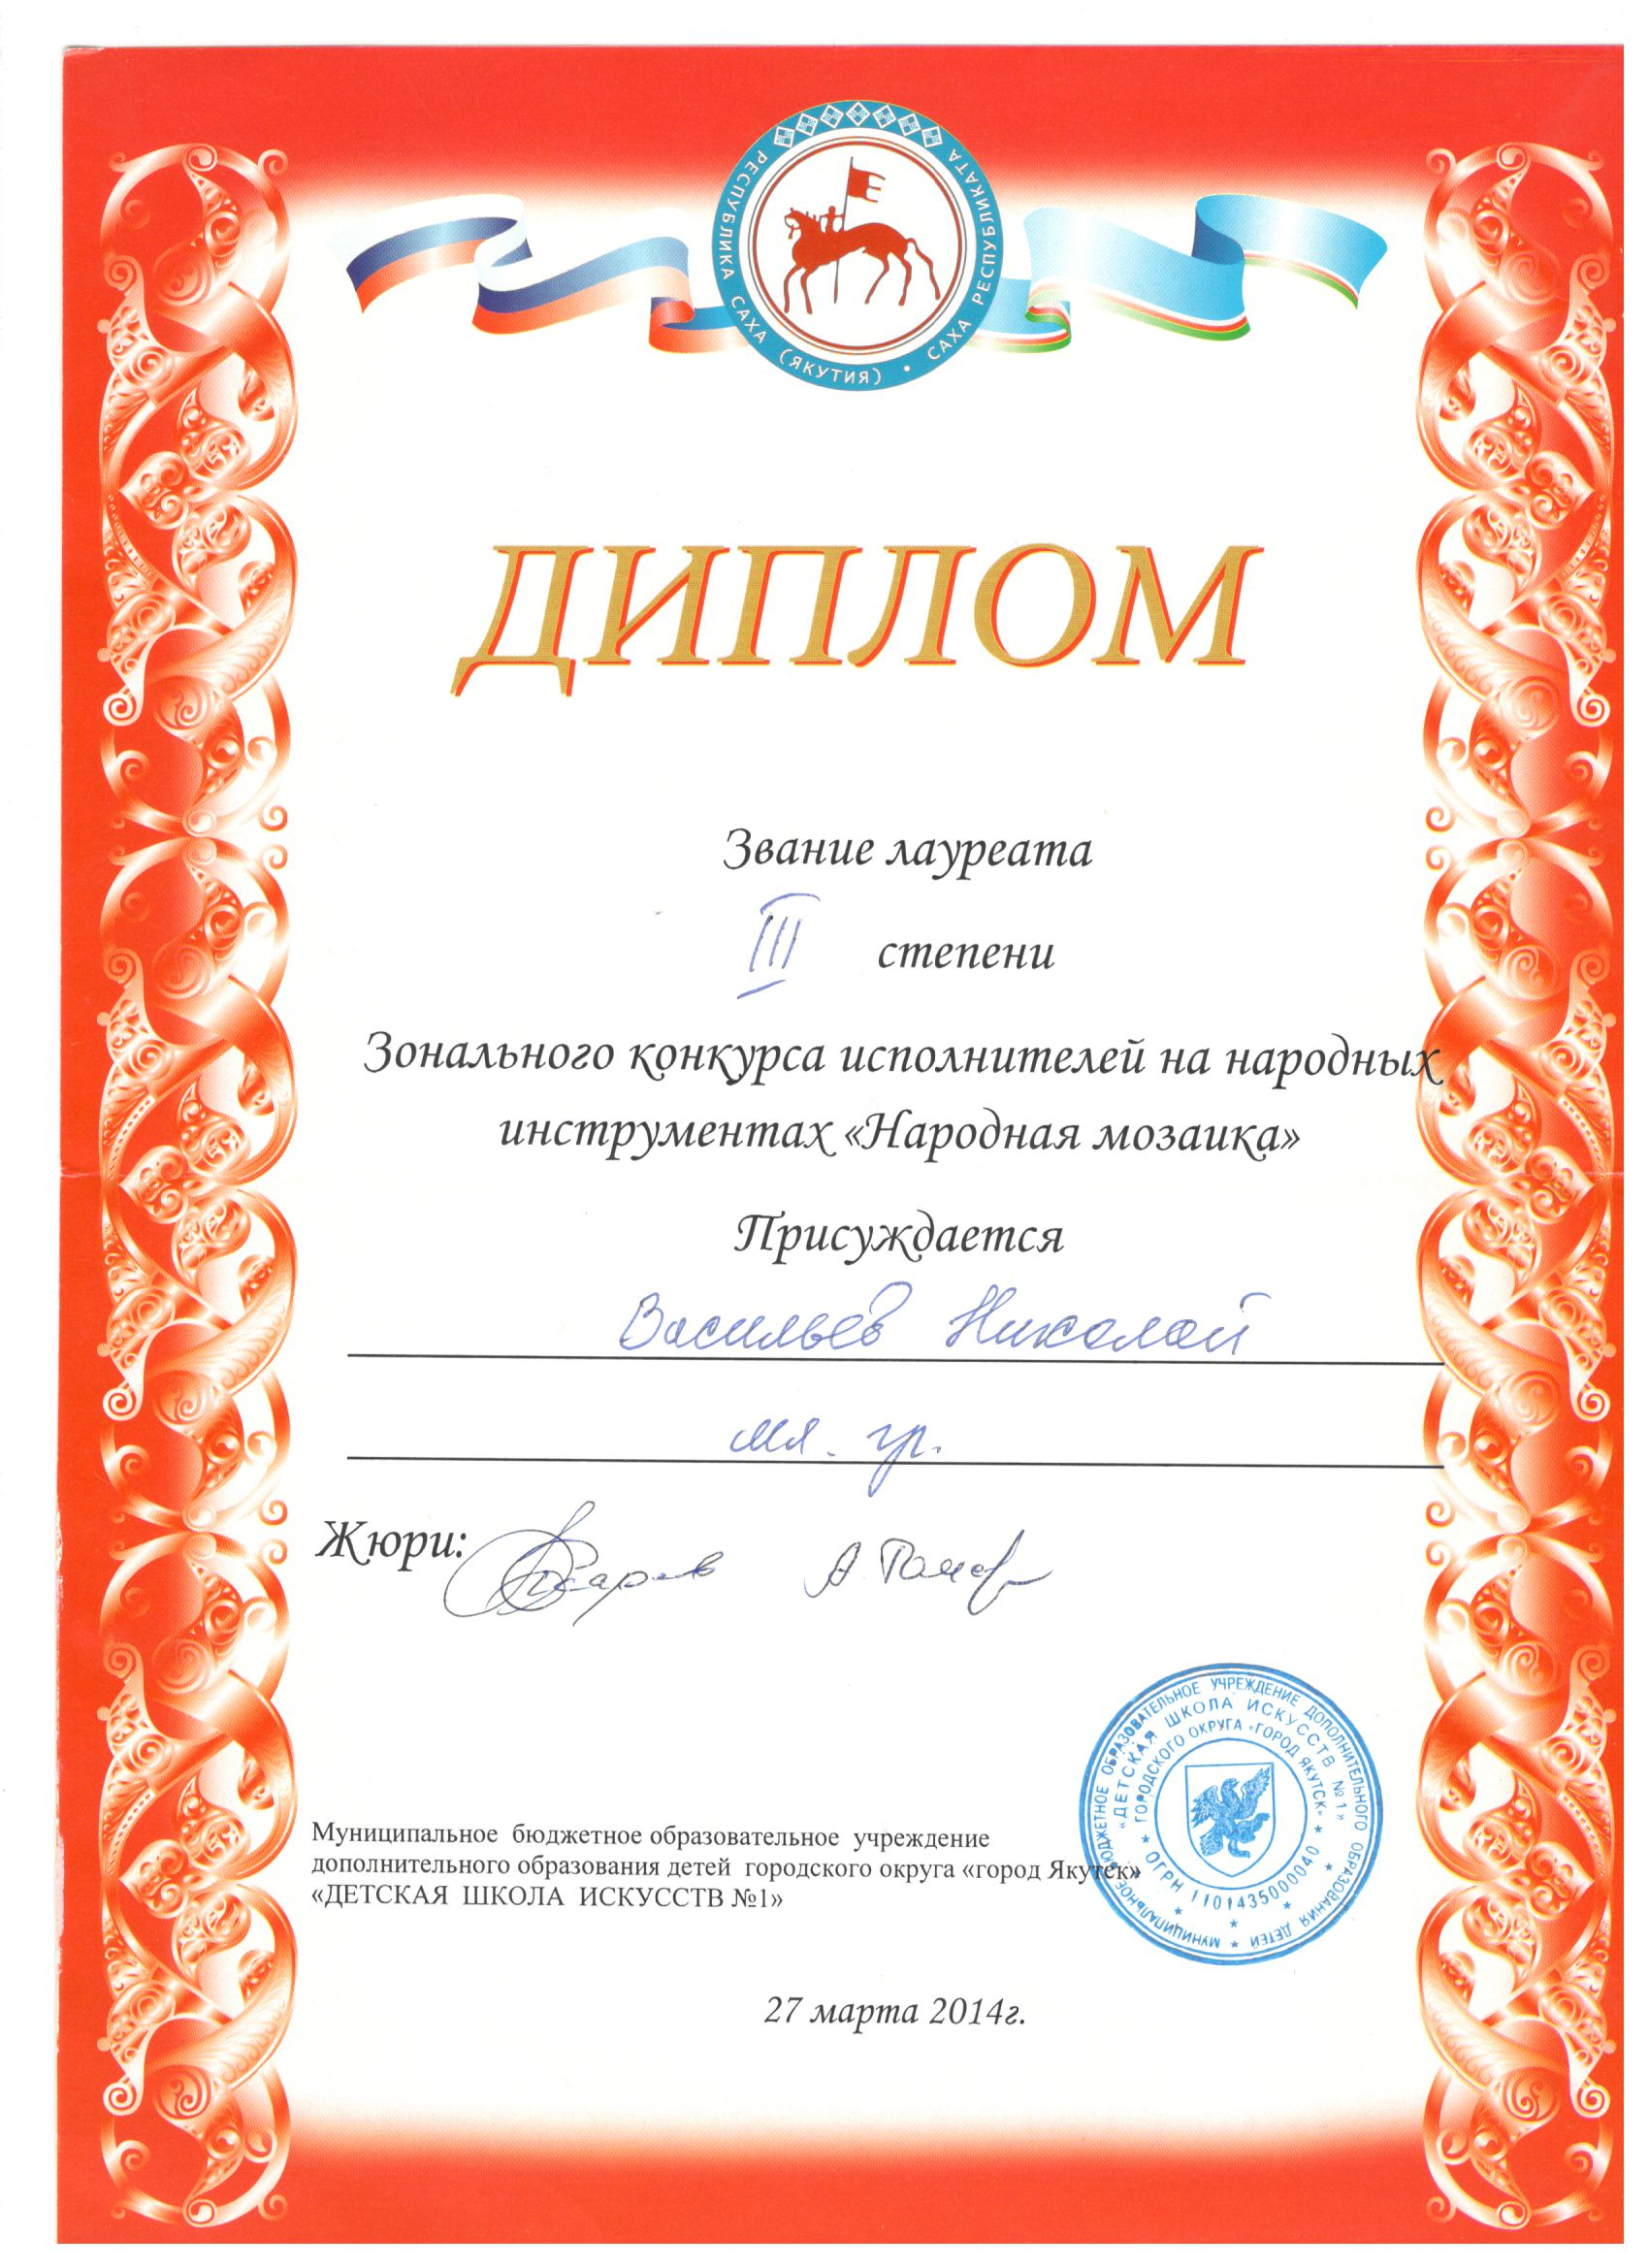 РЕСПУБЛИКА САХА (ЯКУТИЯ) • САХА РЕСПУБЛИКАТА
ДИПЛОМ
Звание лауреата
III степени
Зонального конкурса исполнителей на народных
инструментах «Народная мозаика»
Присуждается
Васильев Николай
мл. гр.
Жюри:
Муниципальное бюджетное образовательное учреждение
дополнительного образования детей городского округа «город Якутск»
«ДЕТСКАЯ ШКОЛА ИСКУССТВ №1»
МУНИЦИПАЛЬНОЕ БЮДЖЕТНОЕ ОБРАЗОВАТЕЛЬНОЕ УЧРЕЖДЕНИЕ ДОПОЛНИТЕЛЬНОГО ОБРАЗОВАНИЯ ДЕТЕЙ
«ДЕТСКАЯ ШКОЛА ИСКУССТВ №1»
ГОРОДСКОГО ОКРУГА «ГОРОД ЯКУТСК»
ОГРН 1101435000040
27 марта 2014г.